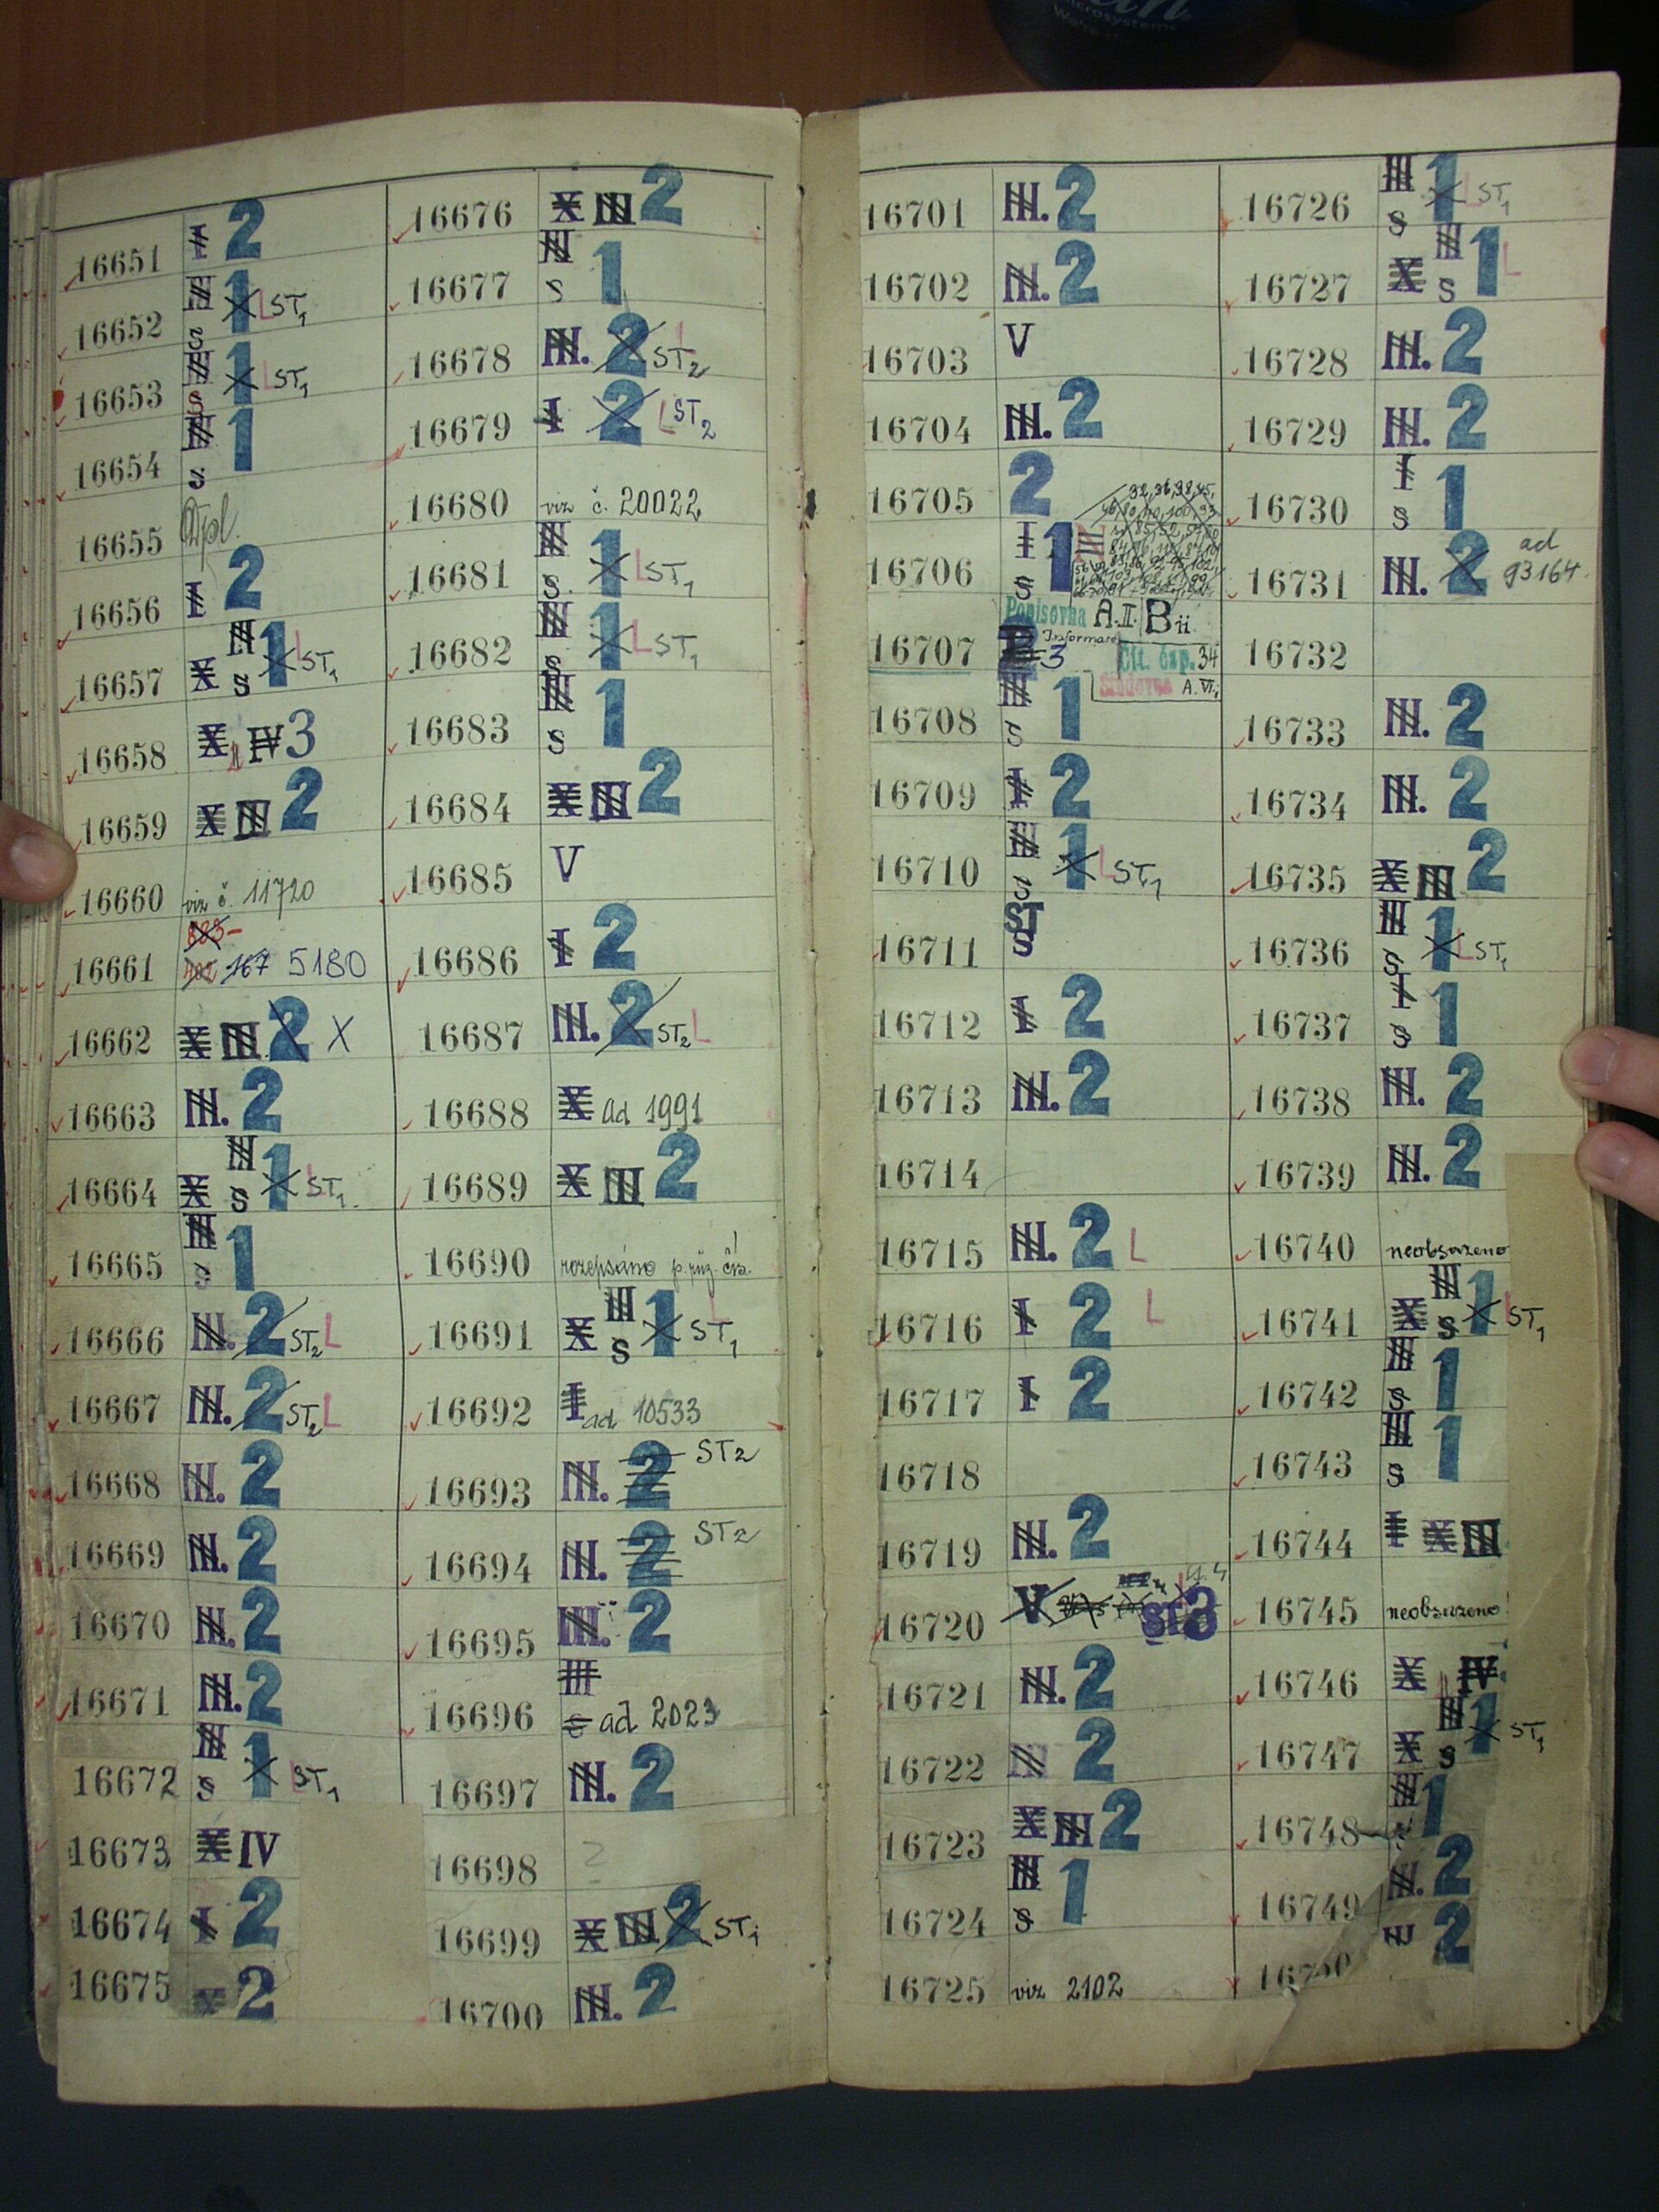 16651 I 2
16652 III S 1 L ST1
16653 III S 1 L ST1
16654 III S 1
16655 Dpl.
16656 I 2
16657 X III S 1 L ST1
16658 X IV 3
16659 X III 2
16660 viz č. 11720
16661 167 5180
16662 X III 2 X
16663 III. 2
16664 X III S 1 L ST1
16665 III S 1
16666 III. 2 ST2 L
16667 III. 2 ST2 L
16668 III. 2
16669 III. 2
16670 III. 2
16671 III. 2
16672 III S 1 L ST1
16673 X IV
16674 I 2
16675 2
16676 X III 2
16677 III S 1
16678 III. 2 L ST2
16679 I 2 L ST2
16680 viz č. 20022
16681 III S. 1 L ST1
16682 III S 1 L ST1
16683 III S 1
16684 X III 2
16685 V
16686 I 2
16687 III. 2 ST2 L
16688 X ad 1991
16689 X III 2
16690 rozepsáno p. růz. čís.!
16691 X III S 1 L ST1
16692 I ad 10533
16693 III. 2 ST2
16694 III. 2 ST2
16695 III. 2
16696 III S ad 2023
16697 III. 2
16698 2
16699 X III 2 ST1
16700 III. 2
16701 III. 2
16702 III. 2
16703 V
16704 III. 2
16705 2
16706 I S 1
Popisovna A.II. B ii
16707 3 Informace Čít. čsp. 34
Studovna A.VI.
16708 III S 1
16709 I 2
16710 III S 1 L ST1
16711 ST S
16712 I 2
16713 III. 2
16714
16715 III. 2 L
16716 I 2 L
16717 I 2
16718
16719 III. 2
16720 V ST3
16721 III. 2
16722 III 2
16723 X III 2
16724 III S 1
16725 viz 2102
16726 III S 1 L ST1
16727 X III S 1 L
16728 III. 2
16729 III. 2
16730 I S 1
16731 III. 2 ad 93164.
16732
16733 III. 2
16734 III. 2
16735 X III 2
16736 III S 1 L ST1
16737 I S 1
16738 III. 2
16739 III. 2
16740 neobsazeno
16741 X III S 1 L ST1
16742 III S 1
16743 III S 1
16744 I X III
16745 neobsazeno!
16746 X IV.
16747 X III S 1 ST1
16748 III 1
16749 III. 2
16750 III 2